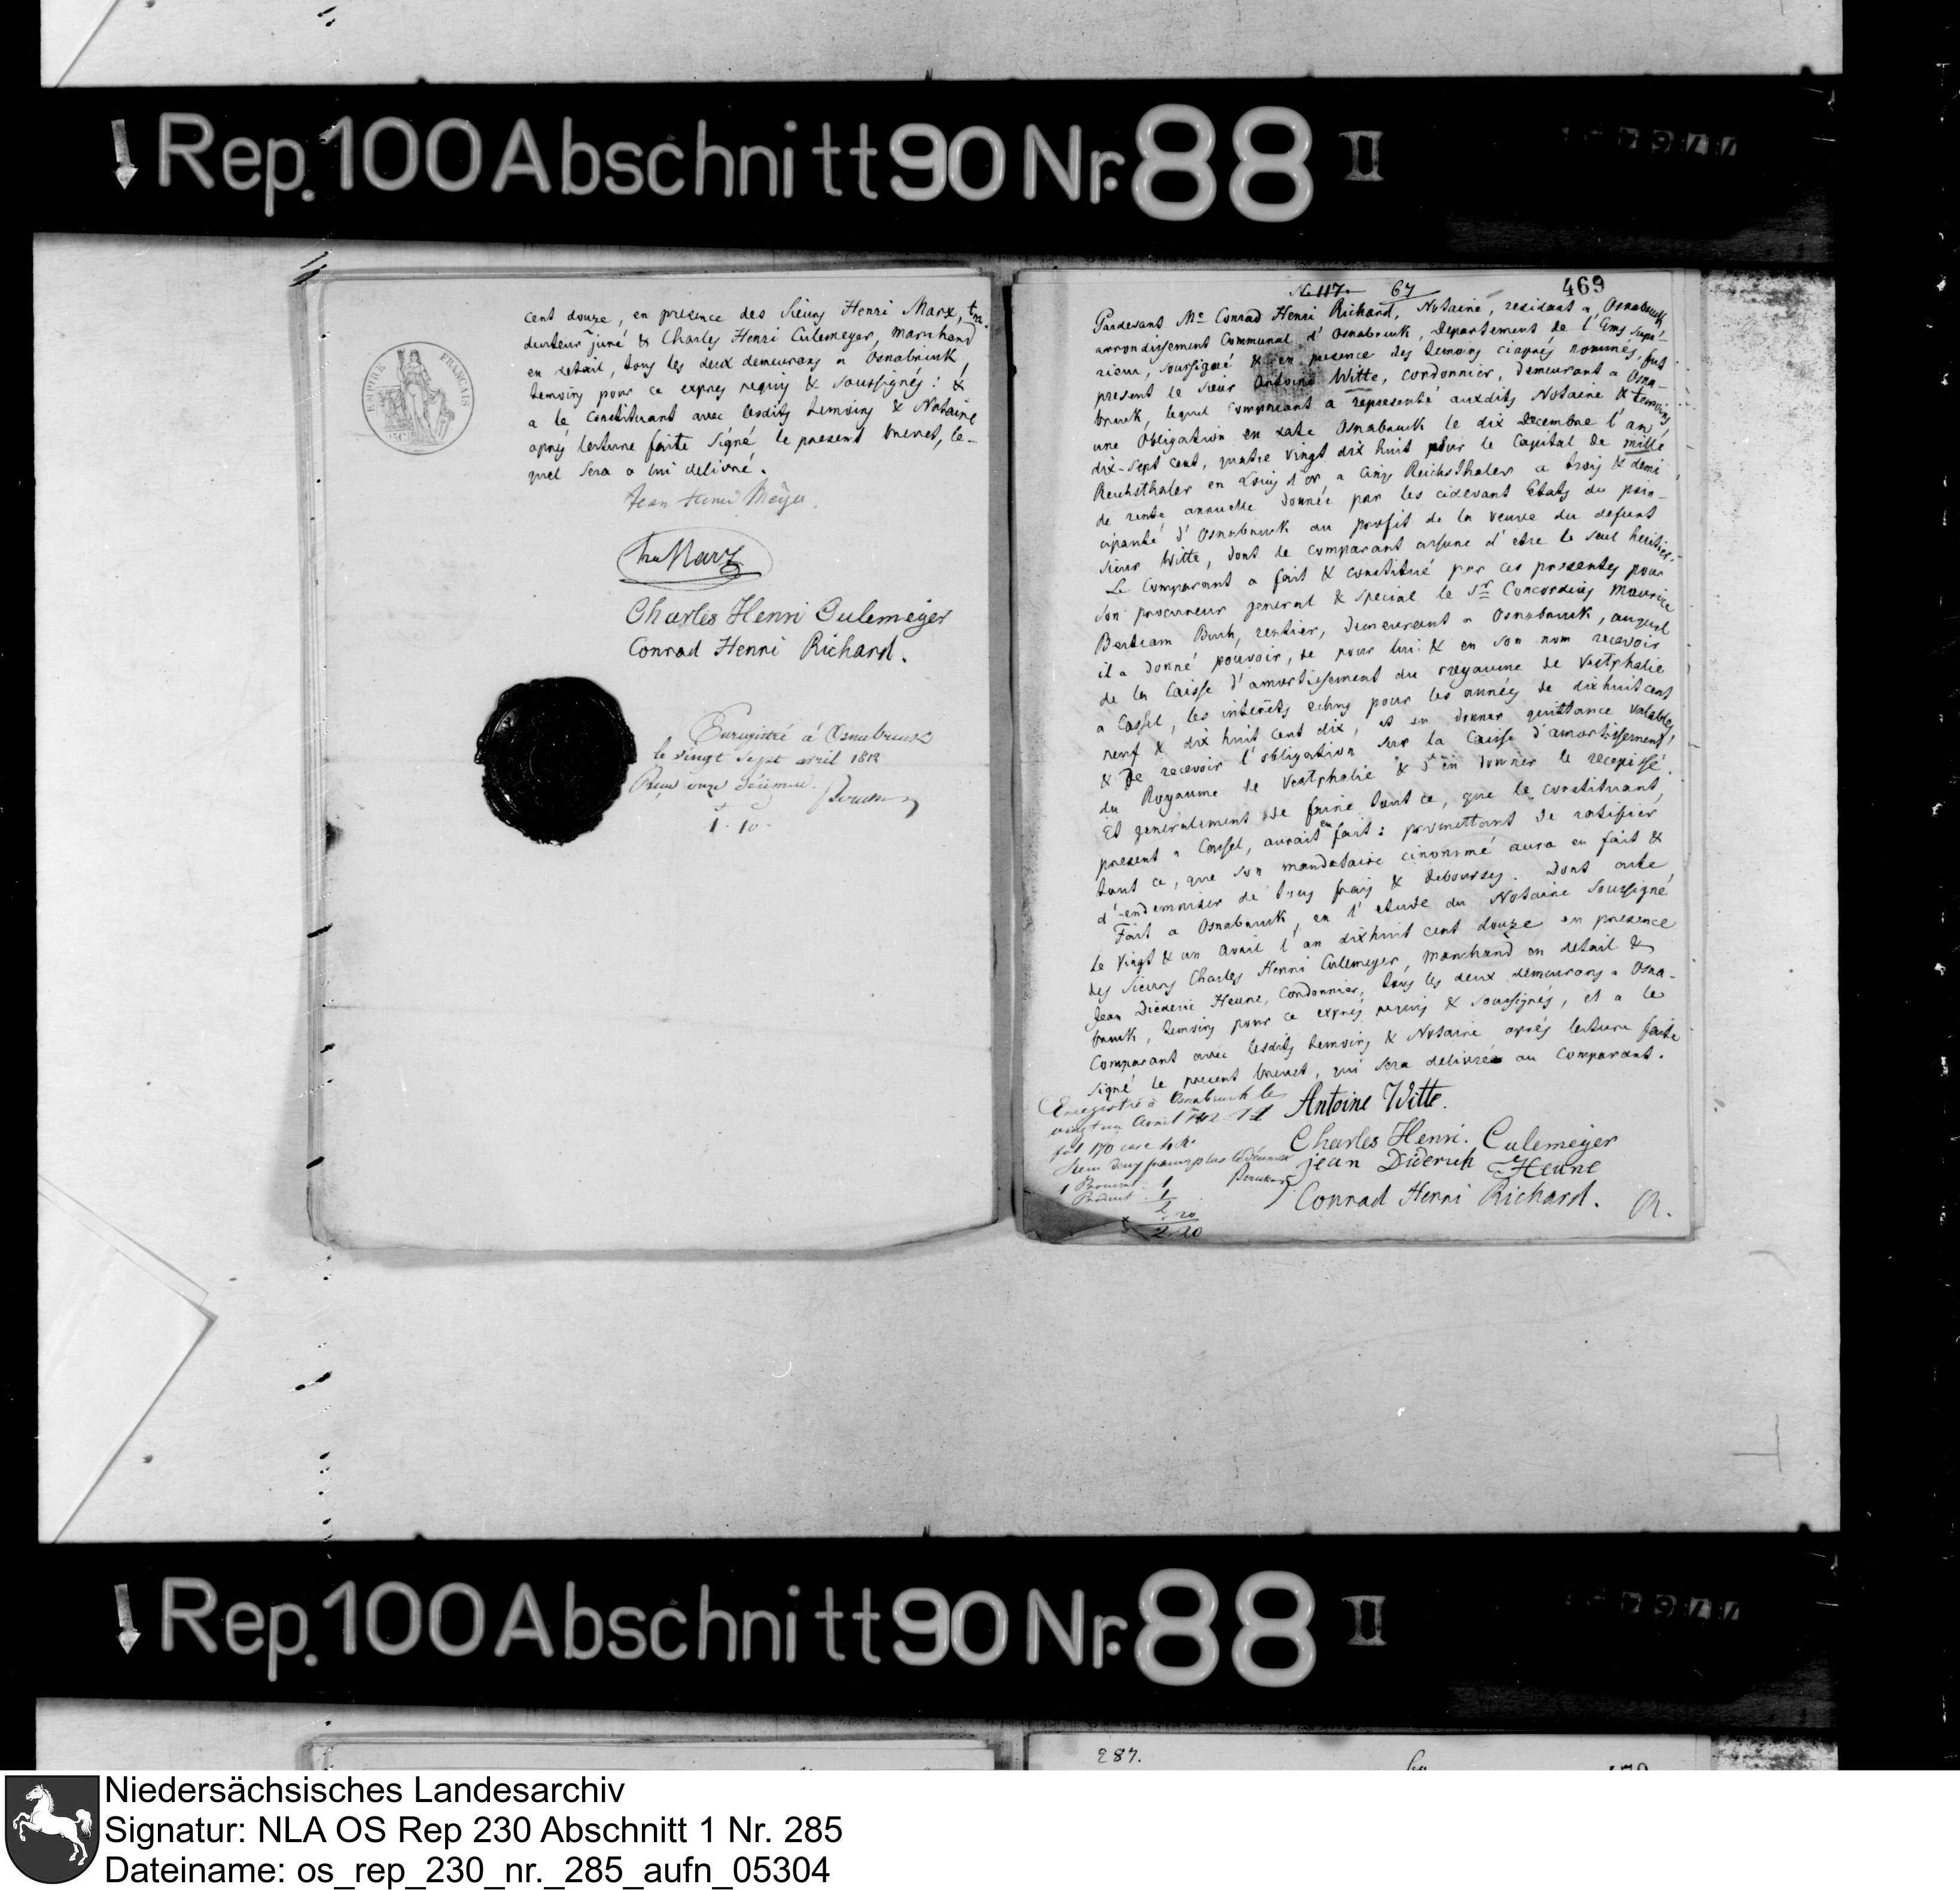 Rep. 100 Abschnitt 90 Nr. 88 II
EMPIRE FRANÇAIS
cent douze, en presence des Sieurs Henri Marx, tra-
ducteur juré & Charles Henri Culemeyer, marchand
en detail, tous les deux demeurans a Osnabruck,
temoins pour ce exprès requis & soussignés: &
a le Constituant avec lesdits temoins & Notaire
après lecture faite signé le present brevet, le-
quel sera a lui delivré.
Jean Henri Meyer.
Marx
Charles Henri Culemeÿer
Conrad Henri Richard.
Enregistré á Osnabruck
le vingt Sept avril 1812
Reçu onze décimes.
1-10-
No 117. 67
469
Pardevant Me Conrad Henri Richard, Notaire, residant a Osnabruck
arrondissement Communal d'Osnabruck, Departement de l'Ems supé-
rieur, soussigné & en presence des temoins ciaprès nommés, fut
present le Sieur Antoine Witte, cordonnier, demeurant a Osna-
bruck, lequel comparant a representé auxdits Notaire & temoins,
une Obligation en date Osnabruck le dix Decembre l'an
dix-sept cent, quatre vingt dix huit pour le Capital de mille
Reichsthaler en Louis d'or, a cinq Reichsthaler a trois & demi
de rente annuelle donnée par les cidevant Etats du prin-
cipauté d'Osnabruck au profit de la veuve du defunt
Sieur Witte, dont le comparant assure d'etre le seul heritier.
Le Comparant a fait & constitué par ces presentes pour
son procureur general & special le Sr Concordius Maurice
Bertram Buch, rentier, demeurant a Osnabruck, auquel
il a donné pouvoir, de pour lui & en son nom recevoir
de la Caisse d'amortissement du royaume de Vestphalie
a Cassel, les interêts echus pour les années de dixhuit cent
neuf & dix huit cent dix, et en donner quittance valable,
& de recevoir l'obligation sur la Caisse d'amortissement,
du Royaume de Vestphalie & d'en donner le recepissé.
Et generalement de faire tout ce, que le constituant,
present a Cassel, aurait en fait: promettant de ratifier
tout ce, que son mandataire cinommé aura en fait &
d'-endemniser de tous frais & deboursés. Dont acte,
Fait a Osnabruck, en l'etude du Notaire soussigné
le vingt & un Avril l'an dixhuit cent douze en presence
des Sieurs Charles Henri Culemeyer, marchand en detail &
Jean Diederic Heune, Cordonnier, tous les deux demeurans a Osna-
bruck, temoins pour ce exprès requis & soussignés, et a le
Comparant avec lesdits temoins & Notaire après lecture faite
signé le present brevet, qui sera delivré au comparant.
Enregistré à Osnabruck le
vingt un Avril 1812
fol 170 case 4
Reçu deux francs plus le décime
1 Pouvoir . 1
1
20
2.20
Antoine Witte.
Charles Henri. Culemeÿer
jean Diderich Heune
Conrad Henri Richard. R.
Rep. 100 Abschnitt 90 Nr. 88 II
287.
Niedersächsisches Landesarchiv
Signatur: NLA OS Rep 230 Abschnitt 1 Nr. 285
Dateiname: os_rep_230_nr._285_aufn_05304